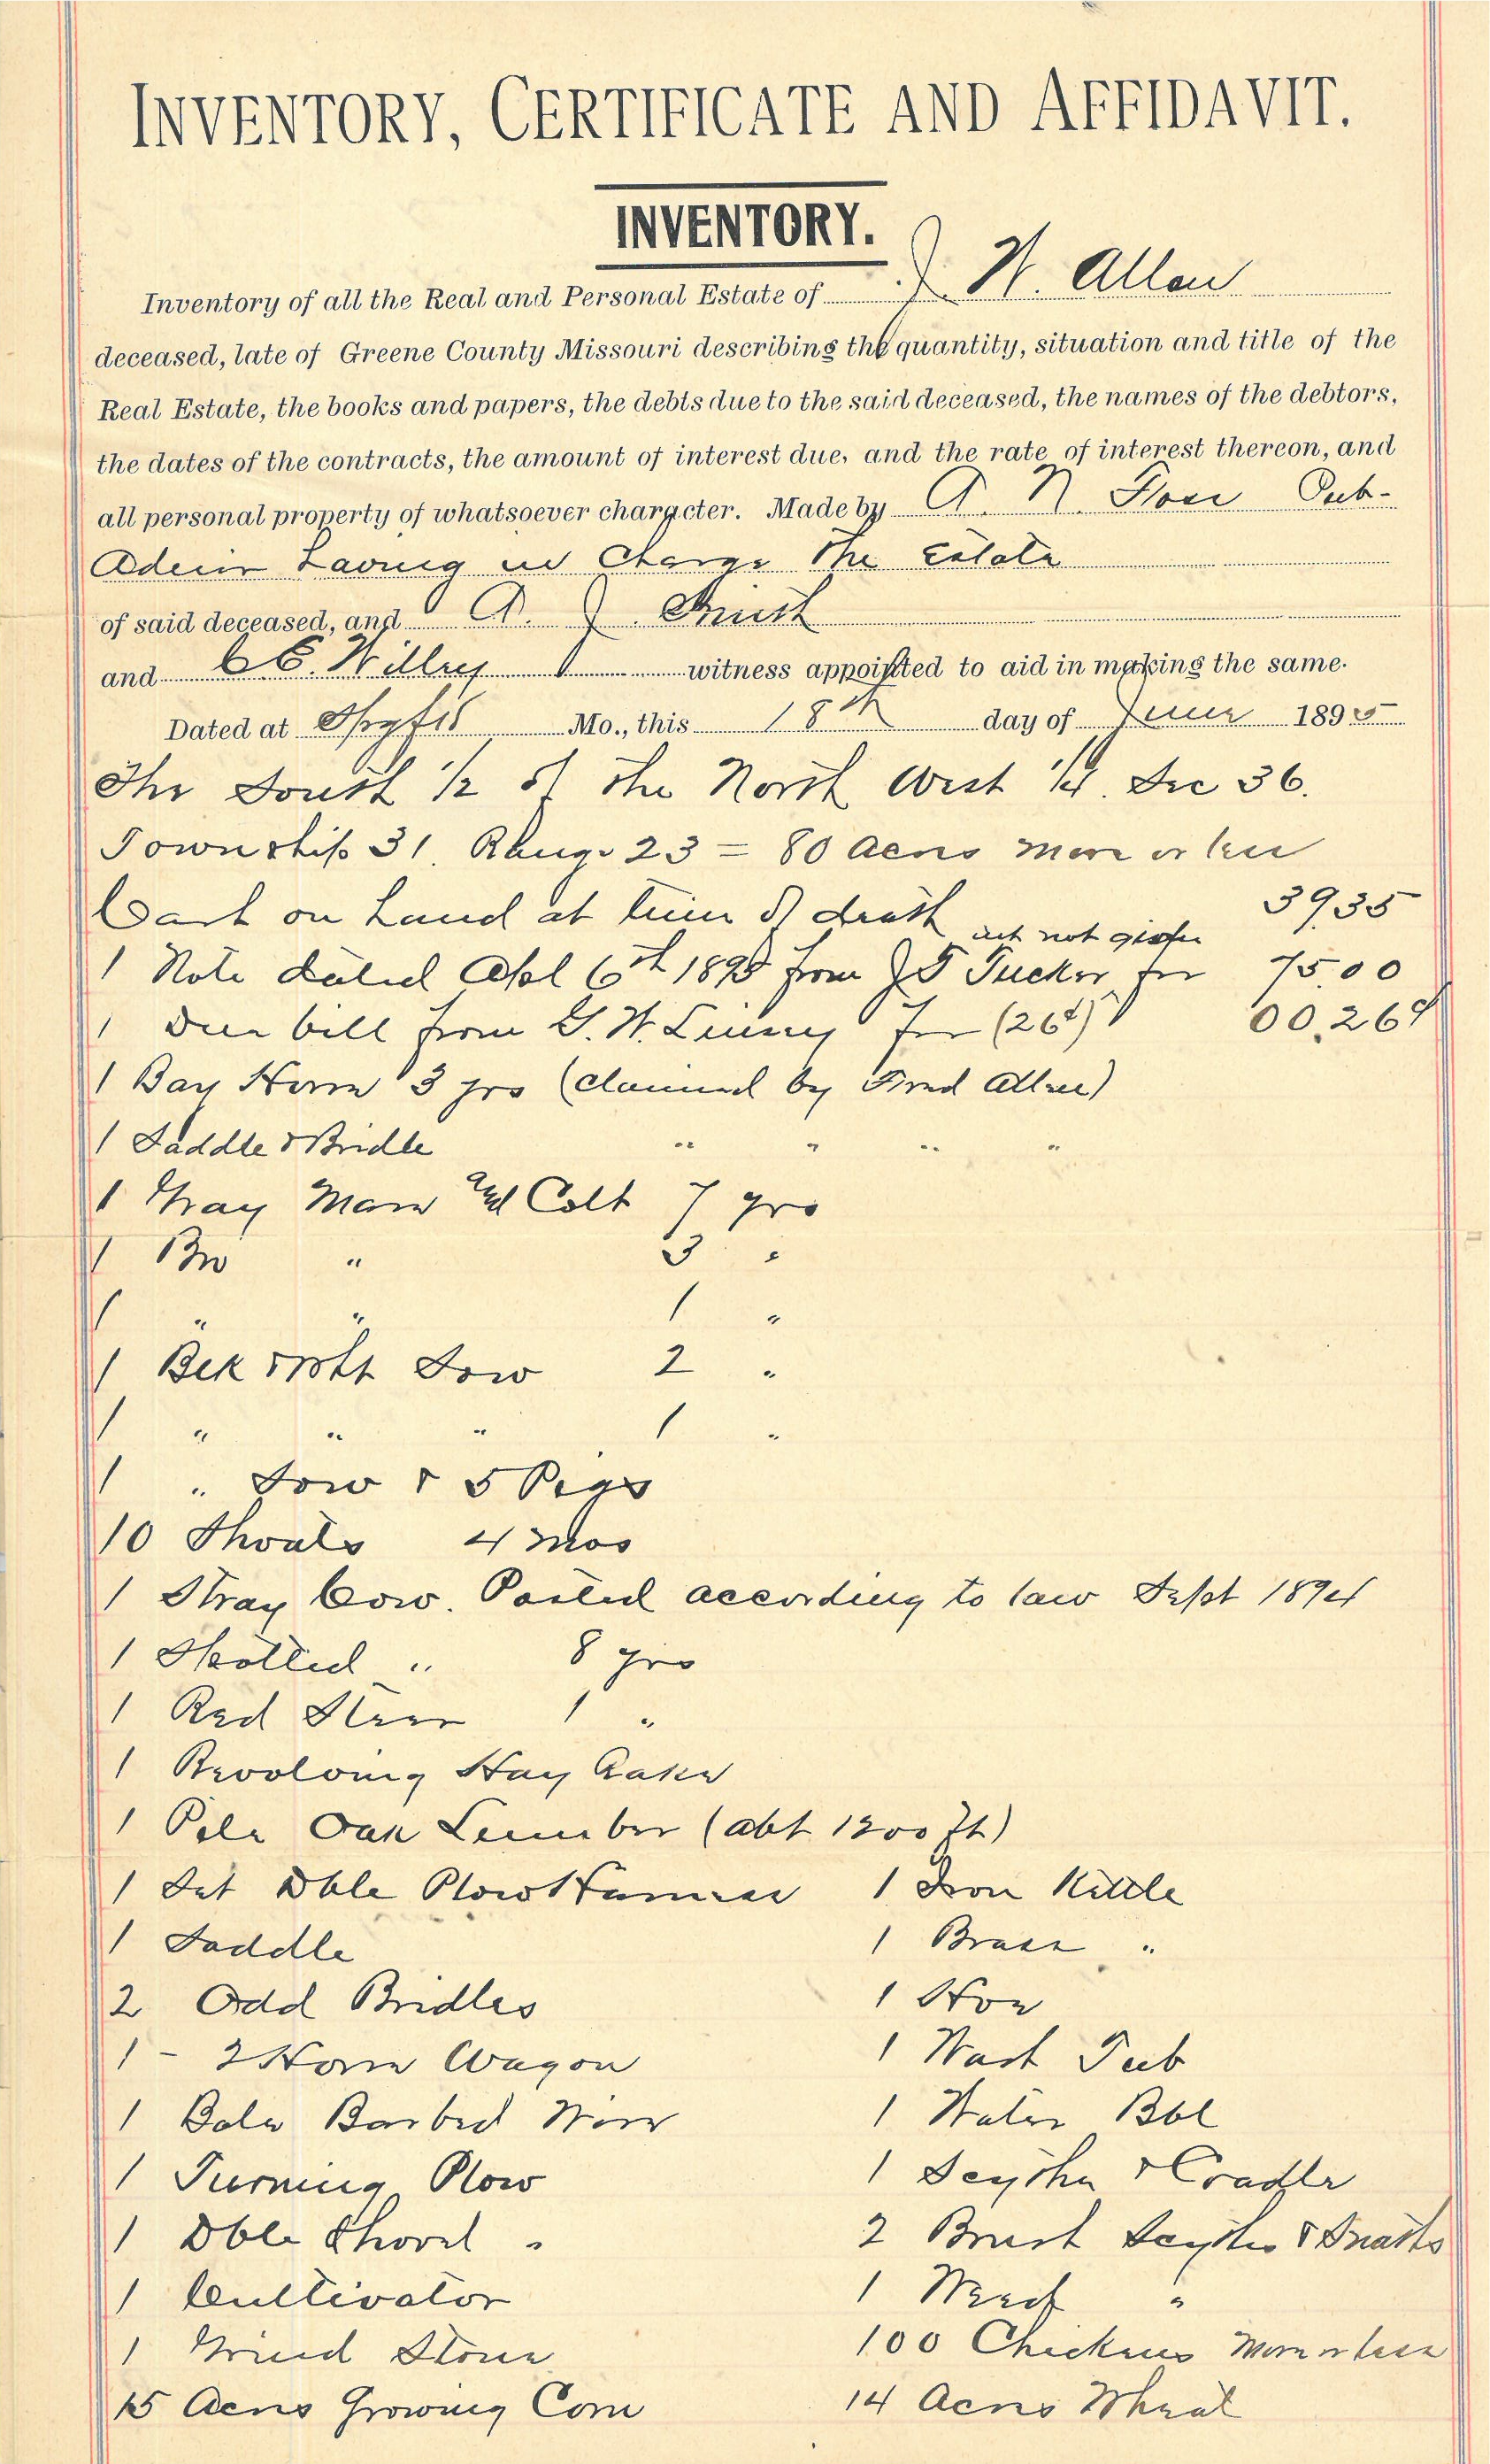 INVENTORY, CERTIFICATE AND AFFIDAVIT.
INVENTORY.
Inventory of all the Real and Personal Estate of J. W. Allen
deceased, late of Greene County Missouri describing the quantity, situation and title of the
Real Estate, the books and papers, the debts due to the said deceased, the names of the debtors,
the dates of the contracts, the amount of interest due, and the rate of interest thereon, and
all personal property of whatsoever character. Made by A. N. Pub-
Admr having in Charge the Estate
of said deceased, and A. J.
and C E. Willey witness appointed to aid in making the same.
Dated at Spgfld Mo., this 18th day of June 1895
The South 1/2 of the North West 1/4. Sec 36.
Township 31. Range 23 = 80 Acres more or less
Cash on hand at time of death 39.35
int not given
1 Note dated Apl 6th 1895 from J T Tucker for 75.00
1 Due bill from G. W. for (26¢) 00.26¢
1 Bay Horse 3 yrs (claimed by Fred Allen)
1 Saddle & Bridle " " " "
1 Gray Mare and Colt 7 yrs
1 Bro " 3 "
1 " " 1 "
1 Blk & Wht Sow 2 "
1 " " " 1 "
1 " Sow & 5 Pigs
10 Shoats 4 mos
1 Stray Cow. Posted according to law Sept 1894
1 Spotted " 8 yrs
1 Red Steer 1 "
1 Revolving Hay Rake
1 Pile Oak Lumber (abt 1200 ft)
1 Set Dble Plow Harness 1 Iron Kettle
1 Saddle 1 Brass "
2 Odd Bridles 1 Hoe
1 - 2 Horse Wagon 1 Wash Tub
1 Bale Barbed Wire 1 Water Bbl
1 Turning Plow 1 Scythe & Cradle
1 Dble Shovel " 2 Brush Scythes & Snaths
1 Cultivator 1 Weed "
1 Grind Stone 100 Chickens More or less
15 Acres Growing Corn 14 Acres Wheat